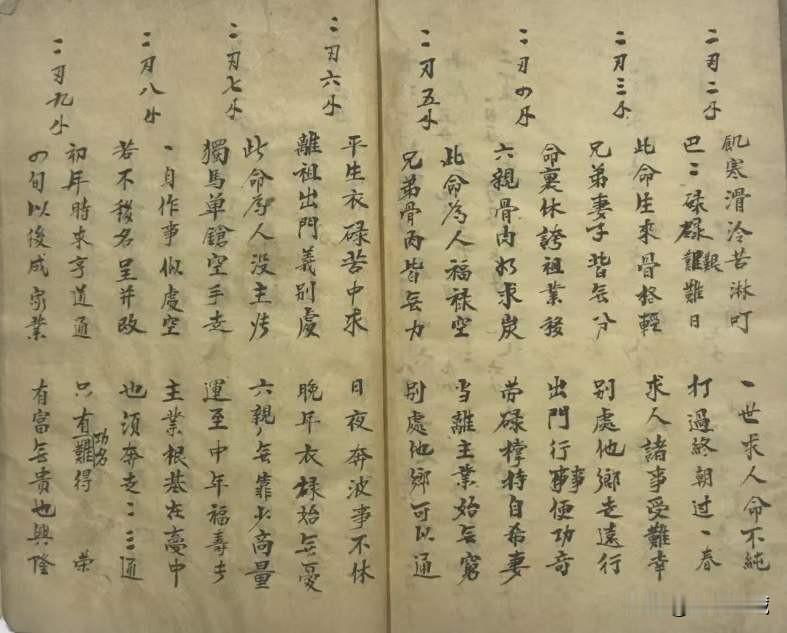 二刃二
飢寒滑冷苦淋叮 一世求人命不純
巴二碌碌艱難日 打過終朝过一春
二刃三
此命生來骨格輕 求人諸事受難幸
兄弟妻子皆無分 別處他鄉走遠行
二刃四
命裏休誇祖業移 出門行事事便功奇
六親骨肉 求炭 勞碌撑持自希妻
二刃五
此命為人福禄空 当離主業始無窮
兄弟骨肉皆無力 别處他鄉可以通
二刃六
平生衣碌苦中求 日夜奔波事不休
離祖出門義别處 晚年衣碌始無憂
二刃七
此命為人没主 六親無靠少高量
獨馬单鎗空手走 運至中年福壽
二刃八
一身作事似虚空 主業根基在夢中
若不移名呈并改 也須奔走二三通
二刃九
初年時来亨道通 只有功名難得 荣
四旬以後成家業 有富無貴也興隆